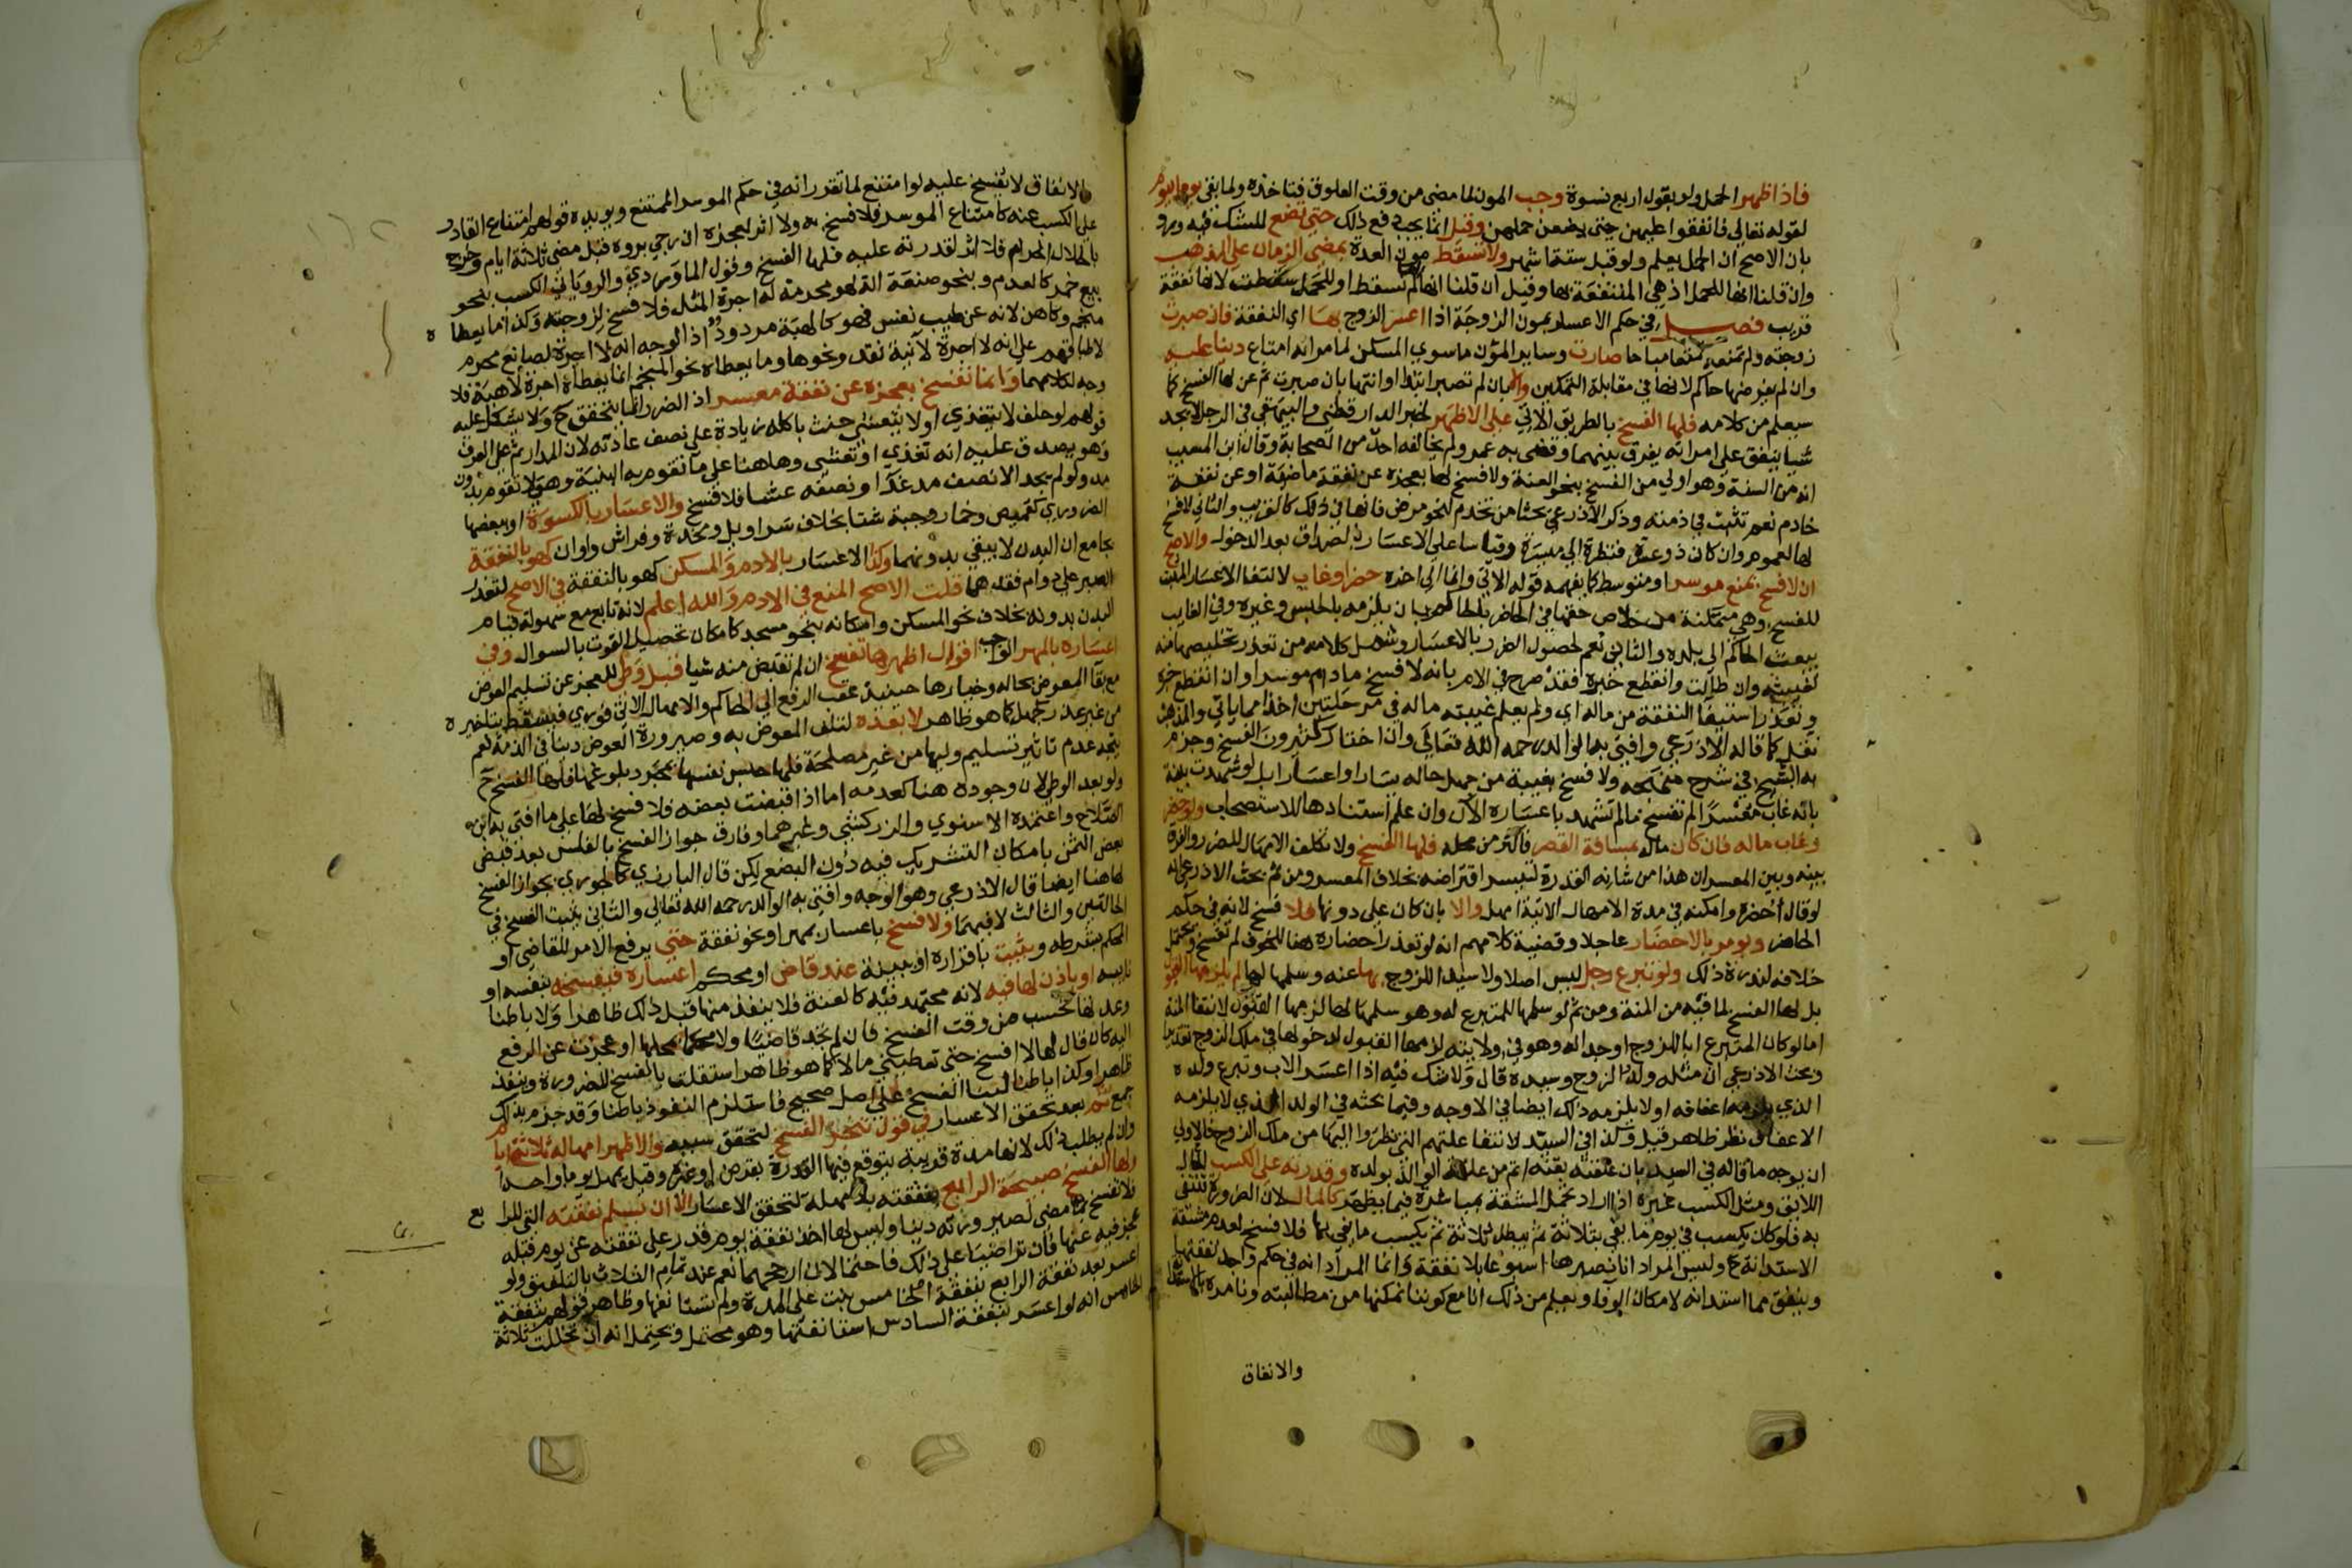 فاذا ظهر الحمل ولو بقول اربع نسوة وجب المون لما مضى من وقت العلوق فتاخذه ولما بقي يوما بيوم
لقوله تعالى فانفقوا عليهن حتى يضعن حملهن وقيل انما يجب دفع ذلك حتى تضع للشك فيه ورد
بان الاصح ان الحمل يعلم ولو قبل ستة اشهر ولا تسقط مون العدة بمضي الزمان على المذهب
وان قلنا انها للحمل اذ هي المنتفعة بها وقيل ان قلنا انها لم تسقط او للحمل سقطت لانها نفقة
قريب فصل في حكم الاعسار بمون الزوجة اذا اعسر الزوج بها اي النفقة فان صبرت
زوجته ولم تمنعه تمتعا مباحا صارت وساير المؤن ما سوي المسكن لما مر انه امتاع دينا عليه
وان لم يفرضها حاكم لانها في مقابلة التمكين والا بان لم تصبر ابتدا او انتها بان صبرت ثم عن لها الفسخ كما
سيعلم من كلامه فلها الفسخ بالطريق الاتي على الاظهر لخبر الدارقطني والبيهقي في الرجل لا يجد
شيا ينفق على امراته يفرق بينهما وقضى به عمر ولم يخالفه احد من الصحابة وقال ابن المسيب
انه من السنة وهو اولي من الفسخ بنحو العنة ولا فسخ لها بعجزه عن نفقة ماضية او عن نفقة
خادم نعم تثبت في ذمته وذكر الاذرعي بحثا من تخدم لنحو مرض فانها في ذلك كالقريب والثاني لا فسخ
لها لعموم وان كان ذو عسرة فنظرة الي ميسرة وقياسا على الاعسار بالصداق بعد الدخول والاصح
ان لا فسخ بمنع موسر او متوسط كما يفهمه قوله الاتي وانما الي اخره حضر او غاب لانتفا الاعسار المثبت
للفسخ وهي متمكنة من خلاص حقها في الحاضر بالحاكم بان يلزمه بالحبس وغيره وفي الغايب
يبعث الحاكم الي بلده والثاني نعم لحصول الضرر بالاعسار وشمل كلامه من تعذر تحصيلها منه
لغيبته وان طالت وانقطع خبره فقد صرح في الام بانه لا فسخ ما دام موسرا وان انقطع خبره
وتعذر استيفا النفقة من ماله اي ولم يعلم غيبته ماله في مرحلتين اخذا مما ياتي والمذهب
نقل كما قاله الاذرعي وافتي به الوالد رحمه الله تعالى وان اختار كثيرون الفسخ وجزم
به الشيخ في شرح منهجه ولا فسخ بغيبة من جهل حاله يسارا واعسارا بل لو شهدت بينة
بانه غاب معسرا لم تفسخ ما لم تشهد باعساره الآن وان علم استنادها للاستصحاب ولو حضر
وغاب ماله فان كان ماله بمسافة القصر فاكثر من محله فلها الفسخ ولا تكلف الامهال للضرر والفرق
بينه وبين المعسر ان هذا من شانه القدرة لتيسر اقتراضه بخلاف المعسر ومن ثم بحث الاذرعي انه
لو قال احضره وامكنه في مدة الامهال الاتية امهل والا بان كان على دونها فلا فسخ لانه في حكم
الحاضر ويومر بالاحضار عاجلا وقضية كلامهم انه لو تعذر احضاره هنا للخوف لم تفسخ ويحتمل
خلافه لندرة ذلك ولو تبرع رجل ليس اصلا ولا سيدا للزوج بها عنه وسلمها لها لم يلزمها القبول
بل لها الفسخ لما فيه من المنة ومن ثم لو سلمها المتبرع له وهو سلمها لها لزمها القبول لانتفا المنة
اما لو كان المتبرع ابا للزوج او جدا له وهو في ولايته لزمها القبول لدخولها في ملك الزوج تقديرا
وبحث الاذرعي ان مثله ولد الزوج وسيده قال ولا شك فيه اذا اعسر الاب وتبرع ولده
الذي يلزمه اعفافه او لا يلزمه ذلك ايضا في الاوجه وفيما بحثه في الولد الذي لا يلزمه
الاعفاف نظر ظاهر قيل وكذا في السيد لانتفا علتهم التي نظروا اليها من ملك الزوج فالاولي
ان يوجه ما قاله في السيد بان علقته بقنه اتم من علقة الوالد بولده وقدرته على الكسب كالمال
اللايق ومثل الكسب غيره اذا اراد تحمل المشقة بمباشرة فيما يظهر كالمال لان الضرورة تنتفي
به فلو كان يكسب في يوم ما يفي بثلاثة ثم يبطل ثلاثة ثم يكسب ما يفي بها فلا فسخ لعدم مشقة
الاستدانة ح وليس المراد انا نصبرها اسبوعا بلا نفقة وانما المراد انه في حكم واجد لنفقتها
وينفق مما استدانه لامكان الوفا ويعلم من ذلك انا مع كوننا نمكنها من مطالبته ونامره بالاستدانة
والانفاق
والانفاق لا تفسخ عليه لو امتنع لما تقرر انه في حكم الموسر الممتنع ويويده قولهم امتناع القادر
على الكسب عنه كامتناع الموسر فلا فسخ به ولا اثر لعجزه ان رجي بروه قبل مضي ثلاثة ايام وخرج
بالحلال الحرام فلا اثر لقدرته عليه فلها الفسخ وقول الماوردي والروياني الكسب بنحو
بيع خمر كالعدم وبنحو صنعة الة لهو محرمة له اجرة المثل فلا فسخ لزوجته وكذا ما يعطاه
منجم وكاهن لانه عن طيب نفس فهو كالهبة مردود اذ الوجه انه لا اجرة لصانع محرم
لاطباقهم علي انه لا اجرة لآنية نقد ونحوها وما يعطاه نحو المنجم انما يعطاه اجرة لا هبة فلا
وجه لكلامهما وانما تفسخ بعجزه عن نفقة معسر اذ الضرر انما يتحقق ح ولا يشكل عليه
قولهم لو حلف لا يتغذي او لا يتعشي حنث باكله زيادة على نصف عادته لان المدار ثم على العرف
وهو يصدق عليه انه تغذي او تعشي وهاهنا على ما تقوم به البنية وهي لا تقوم بدون
مد ولو لم يجد الا نصف مد غدا ونصفه عشا فلا فسخ والاعسار بالكسوة او ببعضها
الضروري كقميص وخمار وجبة شتا بخلاف سراويل ومخدة وفراش واوان كهو بالنفقة
بجامع ان البدن لا يبقي بدونهما وكذا الاعسار بالادم والمسكن كهو بالنفقة في الاصح لتعذر
الصبر علي دوام فقدهما قلت الاصح المنع في الادم والله اعلم لانه تابع مع سهولة قيام
البدن بدونه بخلاف نحو المسكن وامكانه بنحو مسجد كامكان تحصيل القوت بالسوال وفي
اعساره بالمهر الواجب اقوال اظهرها تفسخ ان لم تقبض منه شيا قبل وطي للعجز عن تسليم العوض
مع بقا المعوض بحاله وخيارها حينيذ عقب الرفع الي الحاكم والامهال الاتي فوري فيسقط بتاخيره
من غير عذر كجهل كما هو ظاهر لا بعده لتلف المعوض به وصيرورة العوض دينا في الذمة نعم
يتجه عدم تاثير تسليم وليها من غير مصلحة فلها حبس نفسها بمجرد بلوغها فلها الفسخ ح
ولو بعد الوطي لان وجوده هنا كعدمه اما اذا قبضت بعضه فلا فسخ لها على ما افتي به ابن
الصلاح واعتمده الاسنوي والزركشي وغيرهما وفارق جواز الفسخ بالفلس بعد قبض
بعض الثمن بامكان التشريك فيه دون البضع لكن قال البارزي كالجوري بجواز الفسخ
لها هنا ايضا قال الاذرعي وهو الوجه وافتي به الوالد رحمه الله تعالى والثاني يثبت الفسخ في
الحالتين والثالث لا فيهما ولا فسخ باعسار بمهر او نحو نفقة حتى يرفع الامر للقاضي او
المحكم بشرطه ويثبت باقراره او ببينة عند قاض او محكم اعساره فيفسخه بنفسه او
نايبه او ياذن لها فيه لانه مجتهد فيه كالعنة فلا ينفذ منها قبل ذلك ظاهرا ولا باطنا
وعدتها تحسب من وقت الفسخ فان لم تجد قاضيا ولا محكما بمحلها او عجزت عن الرفع
اليه كان قال لها لا افسخ حتى تعطيني مالا كما هو ظاهر استقلت بالفسخ للضرورة وينفذ
ظاهرا وكذا باطنا لبنا الفسخ علي اصل صحيح فاستلزم النفوذ باطنا وقد جزم بذلك
جمع ثم بعد تحقق الاعسار في قول تنجز الفسخ لتحقق سببه والاظهر امهاله ثلاثة ايام
وان لم يطلب ذلك لانها مدة قريبة يتوقع فيها القدرة بقرض او غيره وقيل يمهل يوما واحدا
ولها الفسخ صبيحة الرابع بنفقته بلا مهلة لتحقق الاعسار الا ان يسلم نفقته التي للرابع
فلا تفسخ بما مضي لصيرورته دينا وليس لها اخذ نفقة يوم قدر على نفقته عن يوم قبله
عجز فيه عنها فان تراضيا على ذلك فاحتمالان ارجحهما نعم عند تمام الثلاث بالتلفيق ولو
اعسر بعد نفقة الرابع بنفقة الخامس بنت على المدة ولم تستانفها وظاهر قولهم بنفقة
الخامس انه لو اعسر بنفقة السادس استانفتها وهو محتمل ويحتمل انه ان تخللت ثلاثة